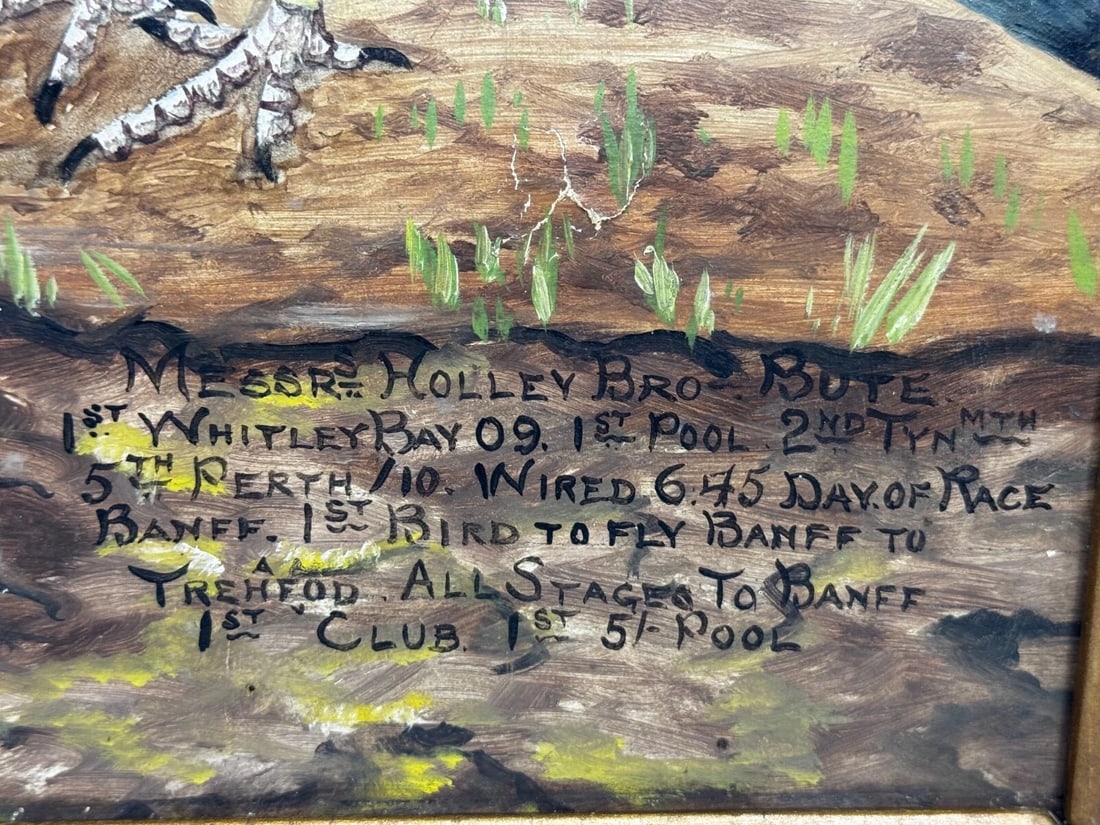 MESSRS HOLLEY BROS. BUTE.
1ST WHITLEY BAY 09. 1ST POOL. 2ND TYNMTH
5TH PERTH /10. WIRED. 6.45 DAY. OF RACE
BANFF. 1ST BIRD TO FLY BANFF TO
TREHFOD. ALL STAGES TO BANFF
1ST CLUB. 1ST 5/- POOL